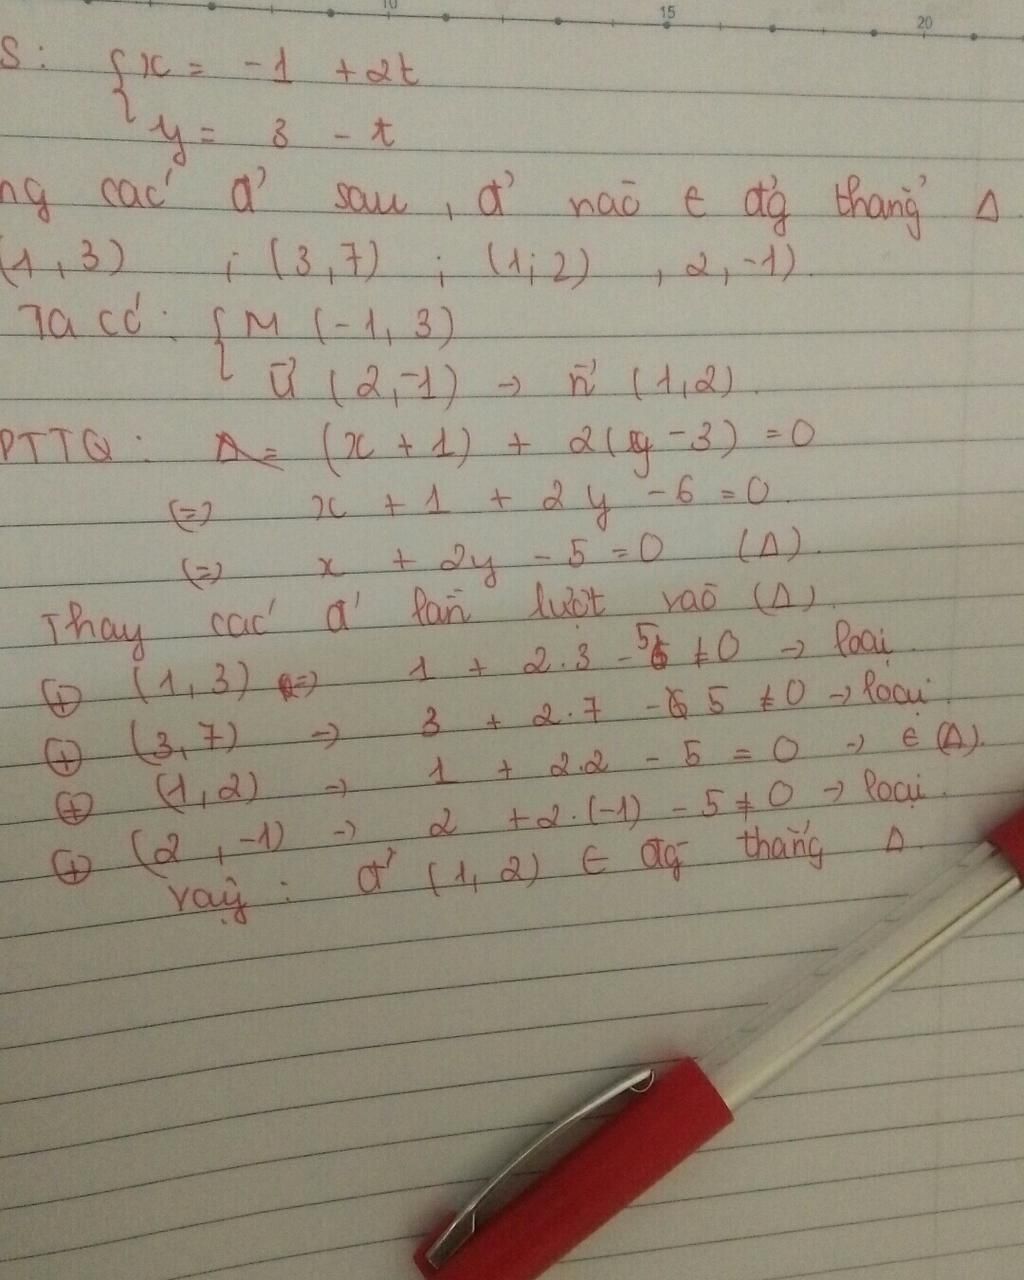 10 15 20
S: { x = -1 + 2t
y = 3 - t
ng các đ' sau, đ' nào ∈ đg thẳng Δ
(1, 3) ; (3, 7) ; (1; 2) , 2, -1)
Ta có: { M (-1, 3)
u⃗ (2, -1) → n⃗ (1, 2).
PTTQ: (x + 1) + 2(y - 3) = 0
(=) x + 1 + 2y - 6 = 0.
(=) x + 2y - 5 = 0 (Δ).
Thay các đ' lần lượt vào (Δ).
⊕ (1, 3) => 1 + 2.3 - 5 ≠ 0 → loại.
⊕ (3, 7) → 3 + 2.7 - 5 ≠ 0 → loại.
⊕ (1, 2) → 1 + 2.2 - 5 = 0 → ∈ (Δ).
⊕ (2, -1) → 2 + 2.(-1) - 5 ≠ 0 → loại.
vậy: đ' (1, 2) ∈ đg thẳng Δ